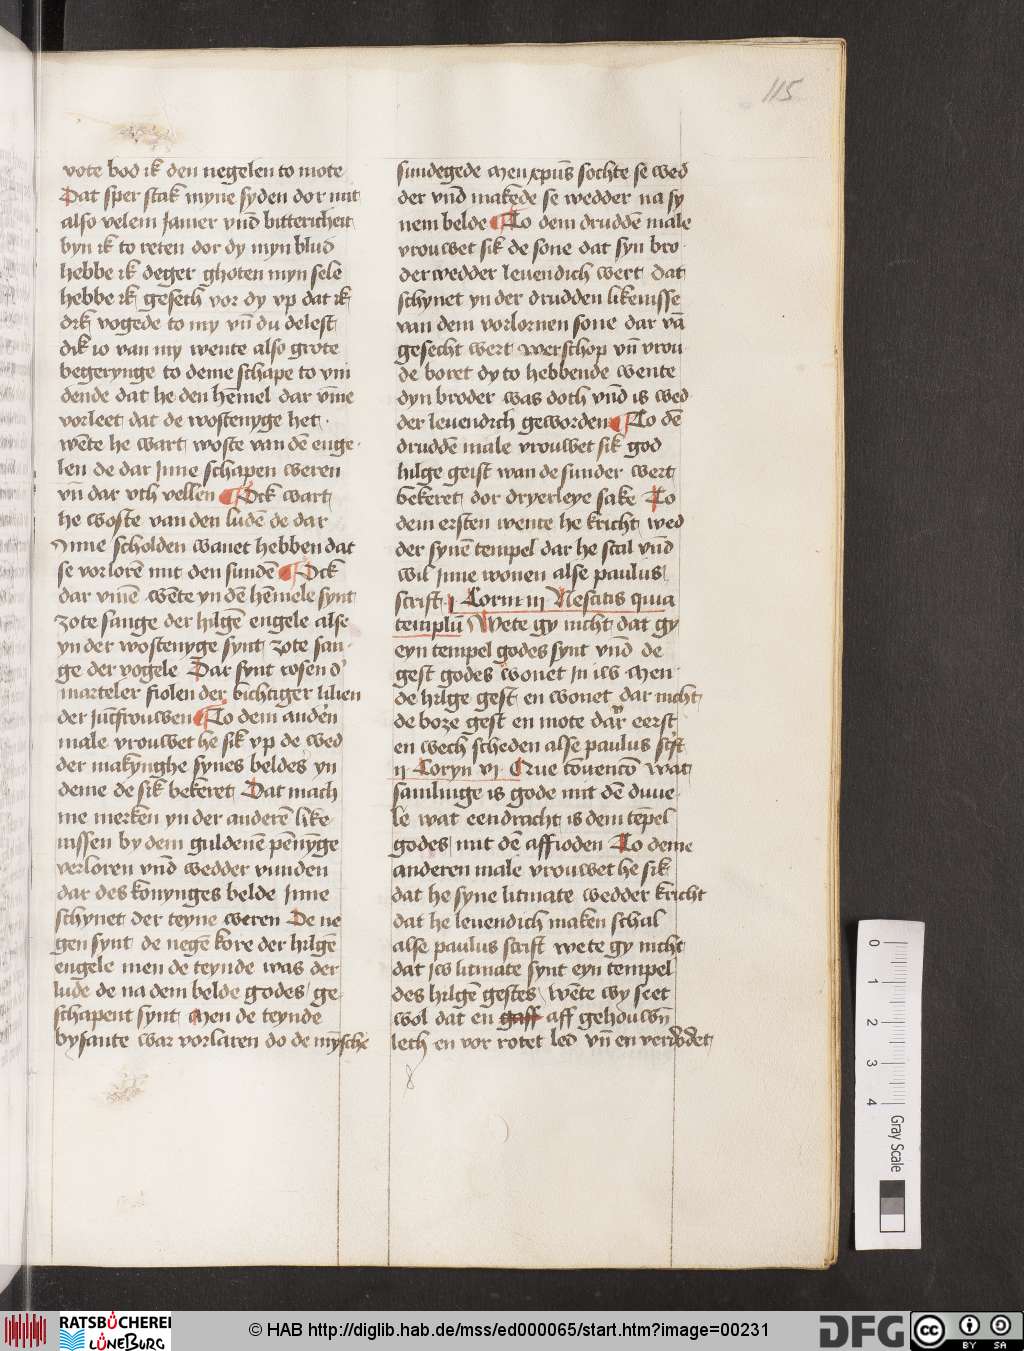 115
vote bod ik den negelen to mote
Dat sper stak myne syden dor mit
also velem Jamer vnd bittericheit
byn ik to reten dor dy myn blud
hebbe ik deger ghoten myn sele
hebbe ik geseth vor dy vp dat ik
dik vogede to my vn̄ du delest
dik io van my wente also grote
begerynge to deme schape to vin
dende dat he den hēmel dar vm̄e
vorleet dat de wostenyge het
wēte he wart woste van dē enge
len de dar Jnne schapen weren
vn̄ dar vth vellen Ock wart
he woste van den ludē de dar
Jnne scholden wanet hebben dat
se vorlorē mit den sundē Ock
dar vmē wēte yn dē hēmele synt
zote sange der hilgē engele alse
yn der wostenyge synt zote san
ge der vogele Dar synt rosen d'
marteler fiolen der bichtiger lilien
der Jūcfrouwen To dem andern
male vrouwet he sik vp de wed
der makynghe synes beldes yn
deme de sik bekeret Dat mach
me merken yn der anderē like
nissen by dem guldenē pēnyge
verloren vnd wedder vunden
dar des konynges belde Jnne
schynet der teyne weren De ne
gen synt de negē kore der hilgē
engele men de teynde was der
lude de na dem belde godes ge
schapent synt Men de teynde
bysante war vorlaren do de mȳsche
sundegede Men xpūs sochte se wed
der vnd makede se wedder na sy
nem belde To dem druddē male
vrouwet sik de sone dat syn bro
der wedder leuendich wert dat
schynet yn der drudden likenisse
van dem vorlornen sone dar vā
gesecht wert werschop vn̄ vrou
de boret dy to hebbende wente
dyn broder was doth vnd is wed
der leuendich geworden To dē
druddē male vrouwet sik god
hilge geist wan de sunder wert
bekeret dor dryerleye sake To
dem ersten wente he kricht wed
der synē tempel dar he scal vnd
wil Jnne wonen alse paulus
scrift j Corin iij Nescitis quia
templū Wete gy nicht dat gy
eyn tempel godes synt vnd de
gest godes wonet in iw Men
de hilge gest en wonet dar nicht
de boze gest en mote dar eerst
en wech scheden alse paulus scift
ij Coryn vj Que cōuencō wat
samlinge is gode mit dē duue
le wat eendracht is dem tēpel
godes mit dē affgoden To deme
anderen male vrouwet he sik
dat he syne litmate wedder kricht
dat he leuendich maken schal
alse paulus scrift wete gy nicht
dat jw litmate synt eyn tempel
des hilgē gestes wēte wy seet
wol dat en gaff aff gehouwn̄
lech en vor rotet led vn̄ en verdordet
0
1
2
3
4
Gray Scale
RATSBÜCHEREI
LÜNEBURG
© HAB http://diglib.hab.de/mss/ed000065/start.htm?image=00231
DFG
cc
BY SA